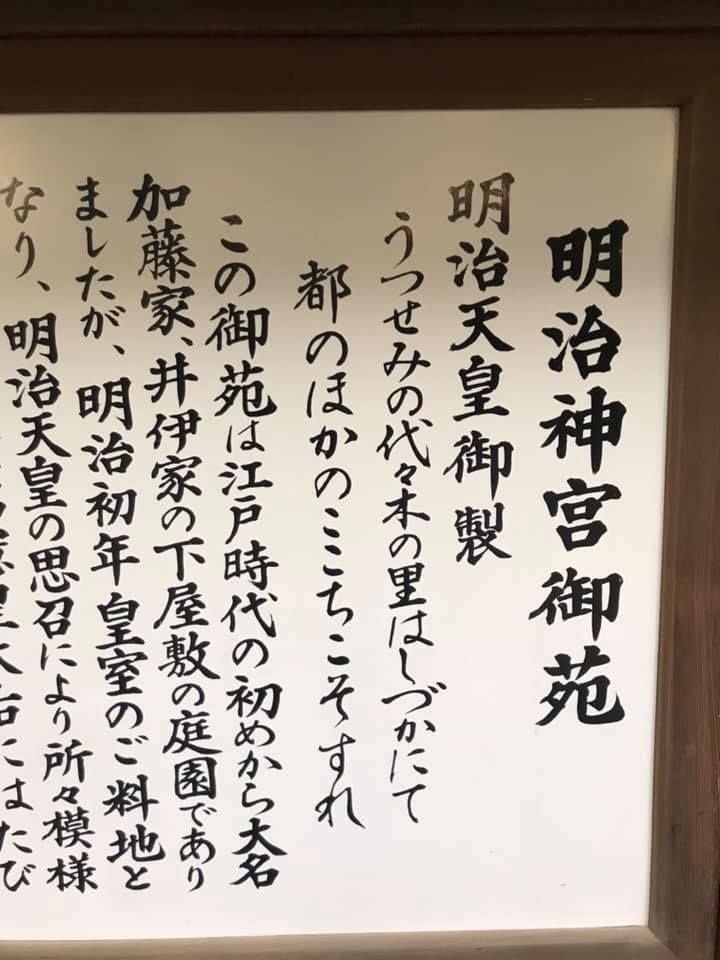 明治神宮御苑
明治天皇御製
うつせみの代々木の里はしづかにて
都のほかのここちこそすれ
この御苑は江戸時代の初めから大名
加藤家、井伊家の下屋敷の庭園であり
ましたが、明治初年皇室のご料地と
なり、明治天皇の思召により所々模様
にはたび